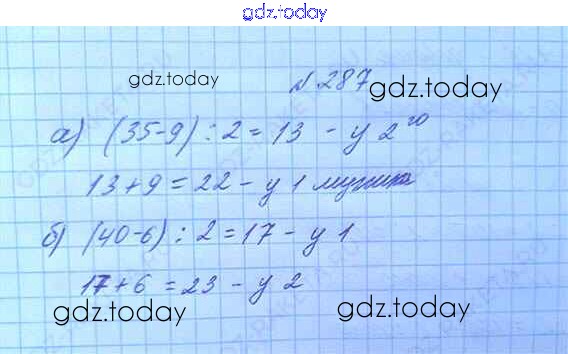 gdz.today
gdz.today
№ 287
gdz.today
а) (35-9) : 2 = 13 - у 2го
13 + 9 = 22 - у 1
б) (40-6) : 2 = 17 - у 1
17 + 6 = 23 - у 2
gdz.today
gdz.today